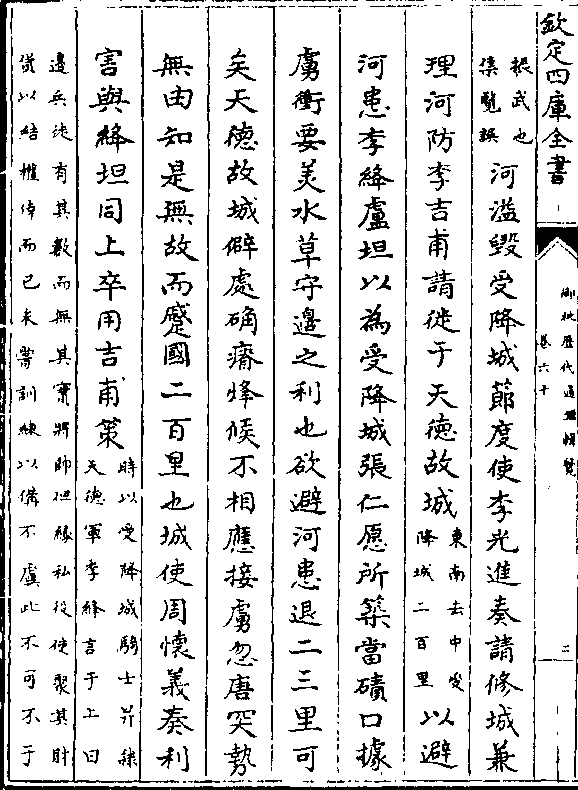 欽定四庫全書
御批歷代通鑑輯覽
卷六十
二
振武也
集覽誤
河溢毀受降城節度使李光進奏請修城兼
理河防李吉甫請徙于天德故城
東南去中受
降城二百里
以避
河患李絳盧坦以為受降城張仁愿所築當磧口據
虜衝要美水草守邊之利也欲避河患退二三里可
矣天德故城僻處确瘠烽候不相應接虜忽唐突勢
無由知是無故而蹙國二百里也城使周懷義奏利
害與絳坦同上卒用吉甫策
時以受降城騎士𠦜緣
天德軍李絳言于上曰
邊兵徒有其數而無其實將帥但緣私役使聚其財
貨以結權倖而已未嘗訓練以備不虞此不可不于